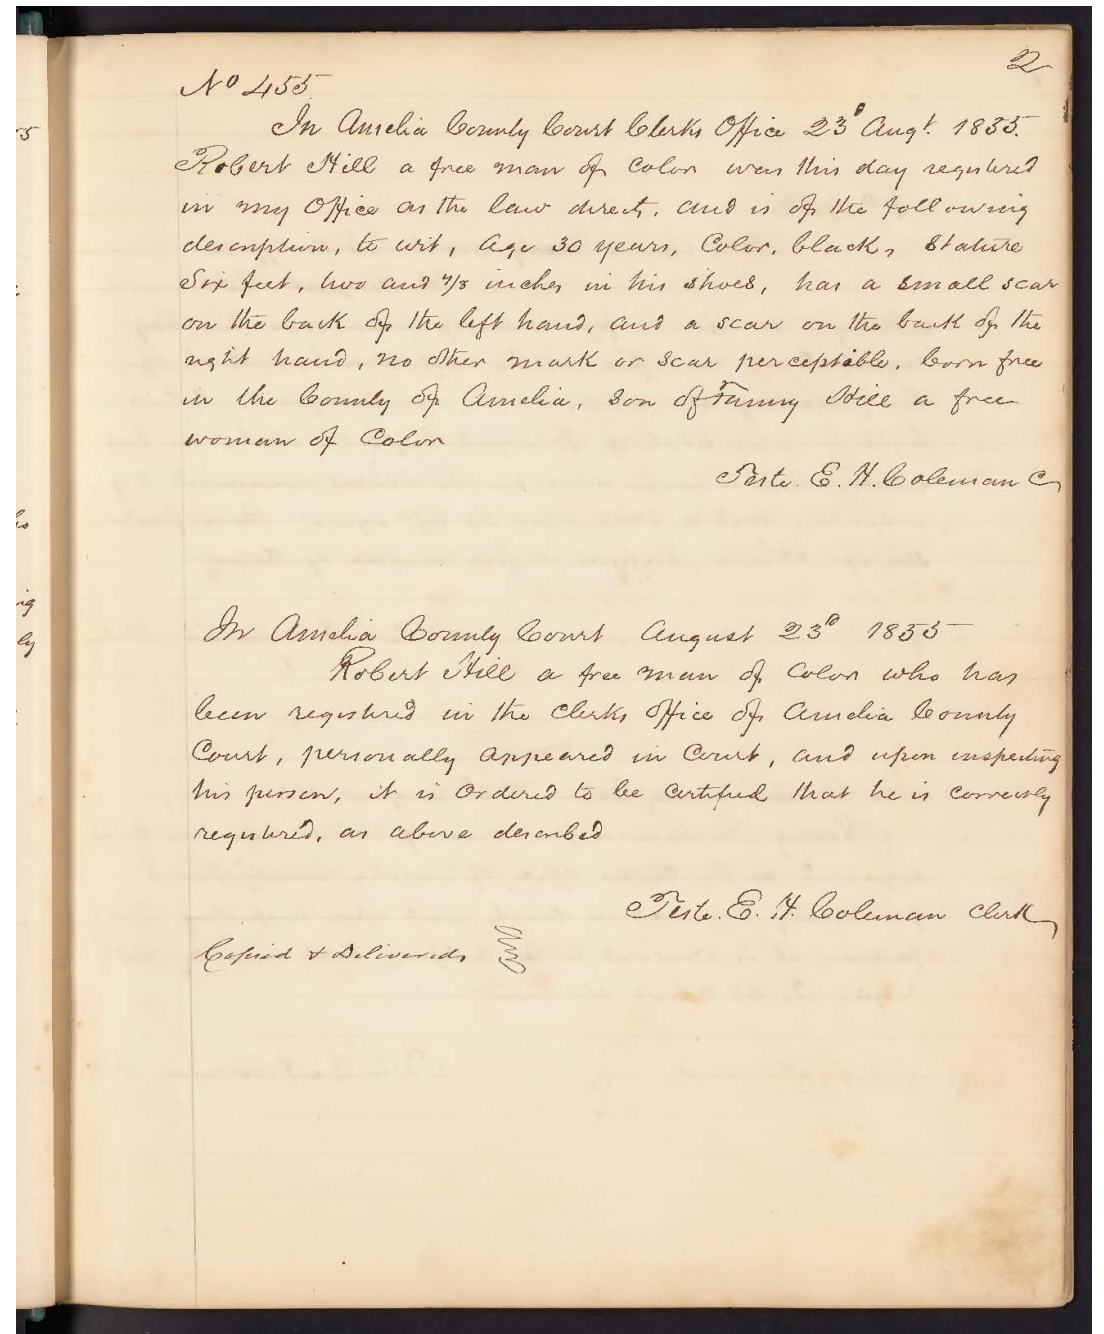 2
No 455
In Amelia County Court Clerks Office 23d Augt. 1855.
Robert Hill a free man of Color was this day registered
in my Office as the law directs, and is of the following
description, to wit, Age 30 years, Color, black, Stature
Six feet, two and 7/8 inches in his shoes, has a small scar
on the back of the left hand, and a scar on the back of the
right hand, no other mark or scar perceptible. born free
in the County of Amelia, Son of Fanny Hill a free
woman of Color
Teste. E. H. Coleman C
In Amelia County Court August 23d 1855
Robert Hill a free man of Color who has
been registered in the Clerks Office of Amelia County
Court, personally appeared in Court, and upon inspecting
his person, it is Ordered to be Certified that he is correctly
registered, as above described
Teste. E. H. Coleman Clerk
Copied & Delivered